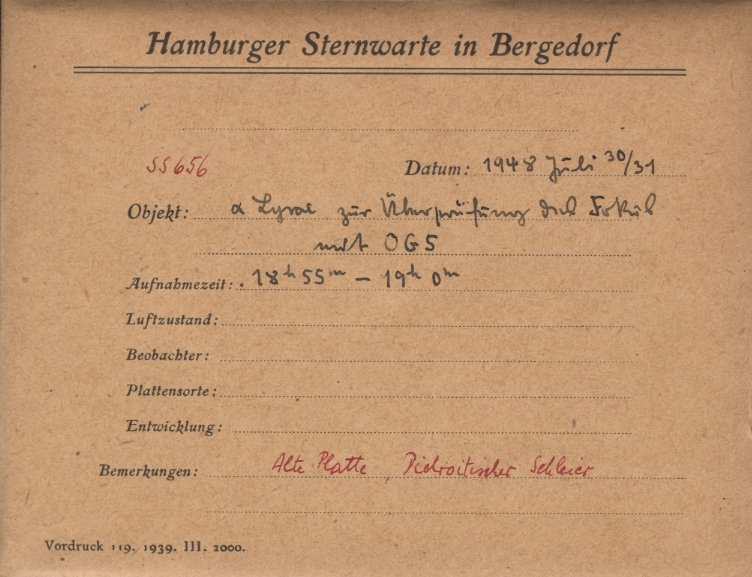 Hamburger Sternwarte in Bergedorf
SS656
Datum: 1948 Juli 30/31
Objekt: α Lyrae zur Überprüfung des Fokus
mit OG5
Aufnahmezeit: 18h 55m – 19h 0m
Luftzustand:
Beobachter:
Plattensorte:
Entwicklung:
Bemerkungen: Alte Platte, Dichroitischer Schleier
Vordruck 119. 1939. III. 2000.